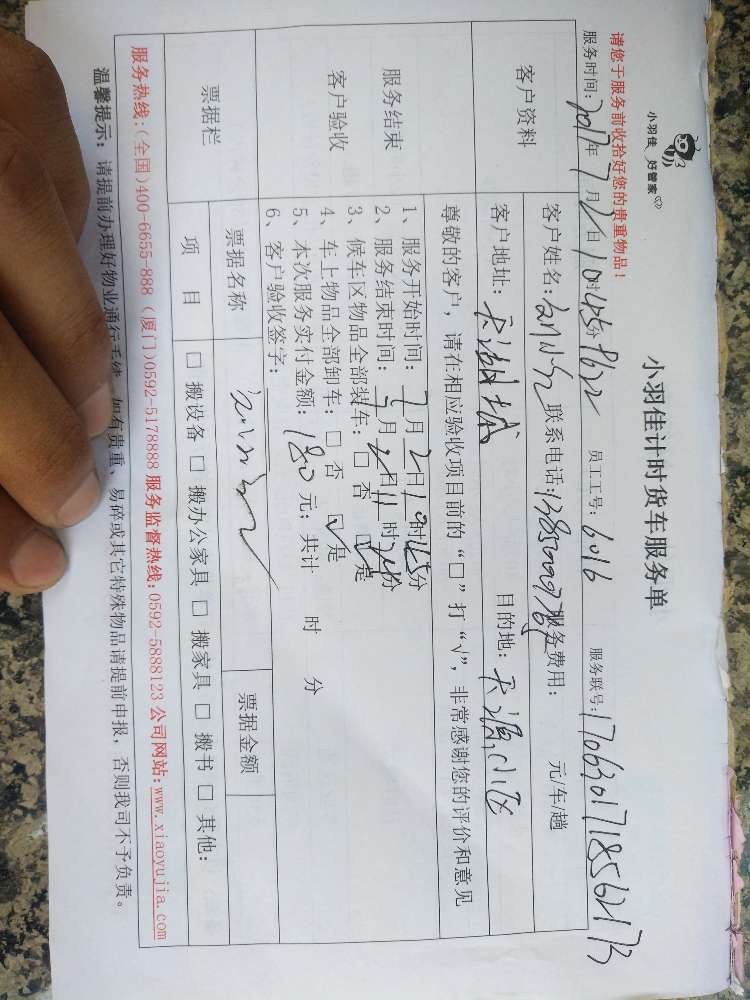 小羽佳 好管家
小羽佳计时货车服务单
请您于服务前收拾好您的贵重物品！
服务时间：2017年7月2日10时45分 员工工号：6016 服务联号：1706301718562173
客户资料
客户姓名： 联系电话： 服务费用： 元/车/趟
客户地址： 目的地：
服务结束
客户验收
尊敬的客户，请在相应验收项目前的“□”打“√”，非常感谢您的评价和意见
1、服务开始时间：7月2日10时45分
2、服务结束时间：7月2日11时 分
3、候车区物品全部装车：□ 否 ☑是
4、车上物品全部卸车：□ 否 ☑是
5、本次服务实付金额：180元；共计 时 分
6、客户验收签字：
票据栏
票据名称 票据金额
项 目 □ 搬设备 □ 搬办公家具 □ 搬家具 □ 搬书 □ 其他：
服务热线：(全国)400-6655-888 (厦门)0592-5178888 服务监督热线：0592-5888123 公司网站：www.xiaoyujia.com
温馨提示：请提前办理好物业通行手续，如有贵重、易碎或其它特殊物品请提前申报，否则我司不予负责。